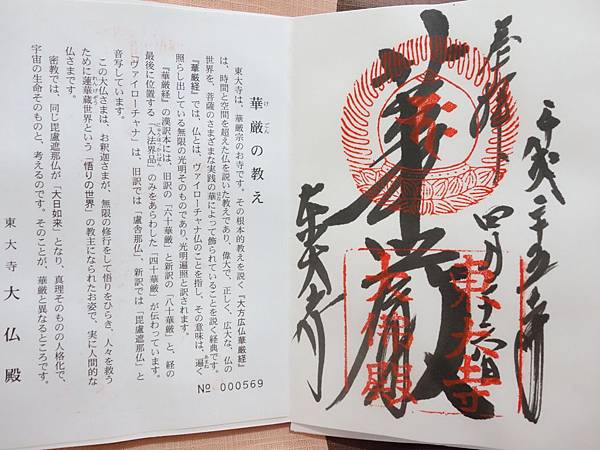 平成二十五年
四月二十六日
奉拝
華厳
東大寺
東大寺
大佛殿
華厳の教え
東大寺は、華厳宗のお寺です。その根本的教えを説く『大方広仏華厳経』
は、時間と空間を超えた仏を説いた教えであり、偉大で、正しく、広大な、仏の
世界を、菩薩のさまざまな実践の華によって飾られていることを説く経典です。
『華厳経』では、仏とは、ヴァイローチャナ仏のことを指し、その意味は、遍く
照らし出している無限の光明そのものであり、光明遍照と訳されます。
『華厳経』の漢訳本には、旧訳の「六十華厳」と新訳の「八十華厳」と、経の
最後に位置する「入法界品」のみをあらわした「四十華厳」が伝わっています。
「ヴァイローチャナ」は、旧訳では「盧舎那仏」、新訳では「毘盧遮那仏」と
音写しています。
この大仏さまは、お釈迦さまが、無限の修行をして悟りをひらき、人々を救う
ために蓮華蔵世界という「悟りの世界」の教主になられたお姿で、実に人間的な
仏さまです。
密教では、同じ毘盧遮那仏が「大日如来」となり、真理そのものの人格化で、
宇宙の生命そのものと、考えるのです。そのことが、華厳と異なるところです。
東大寺 大仏殿
№ 000569